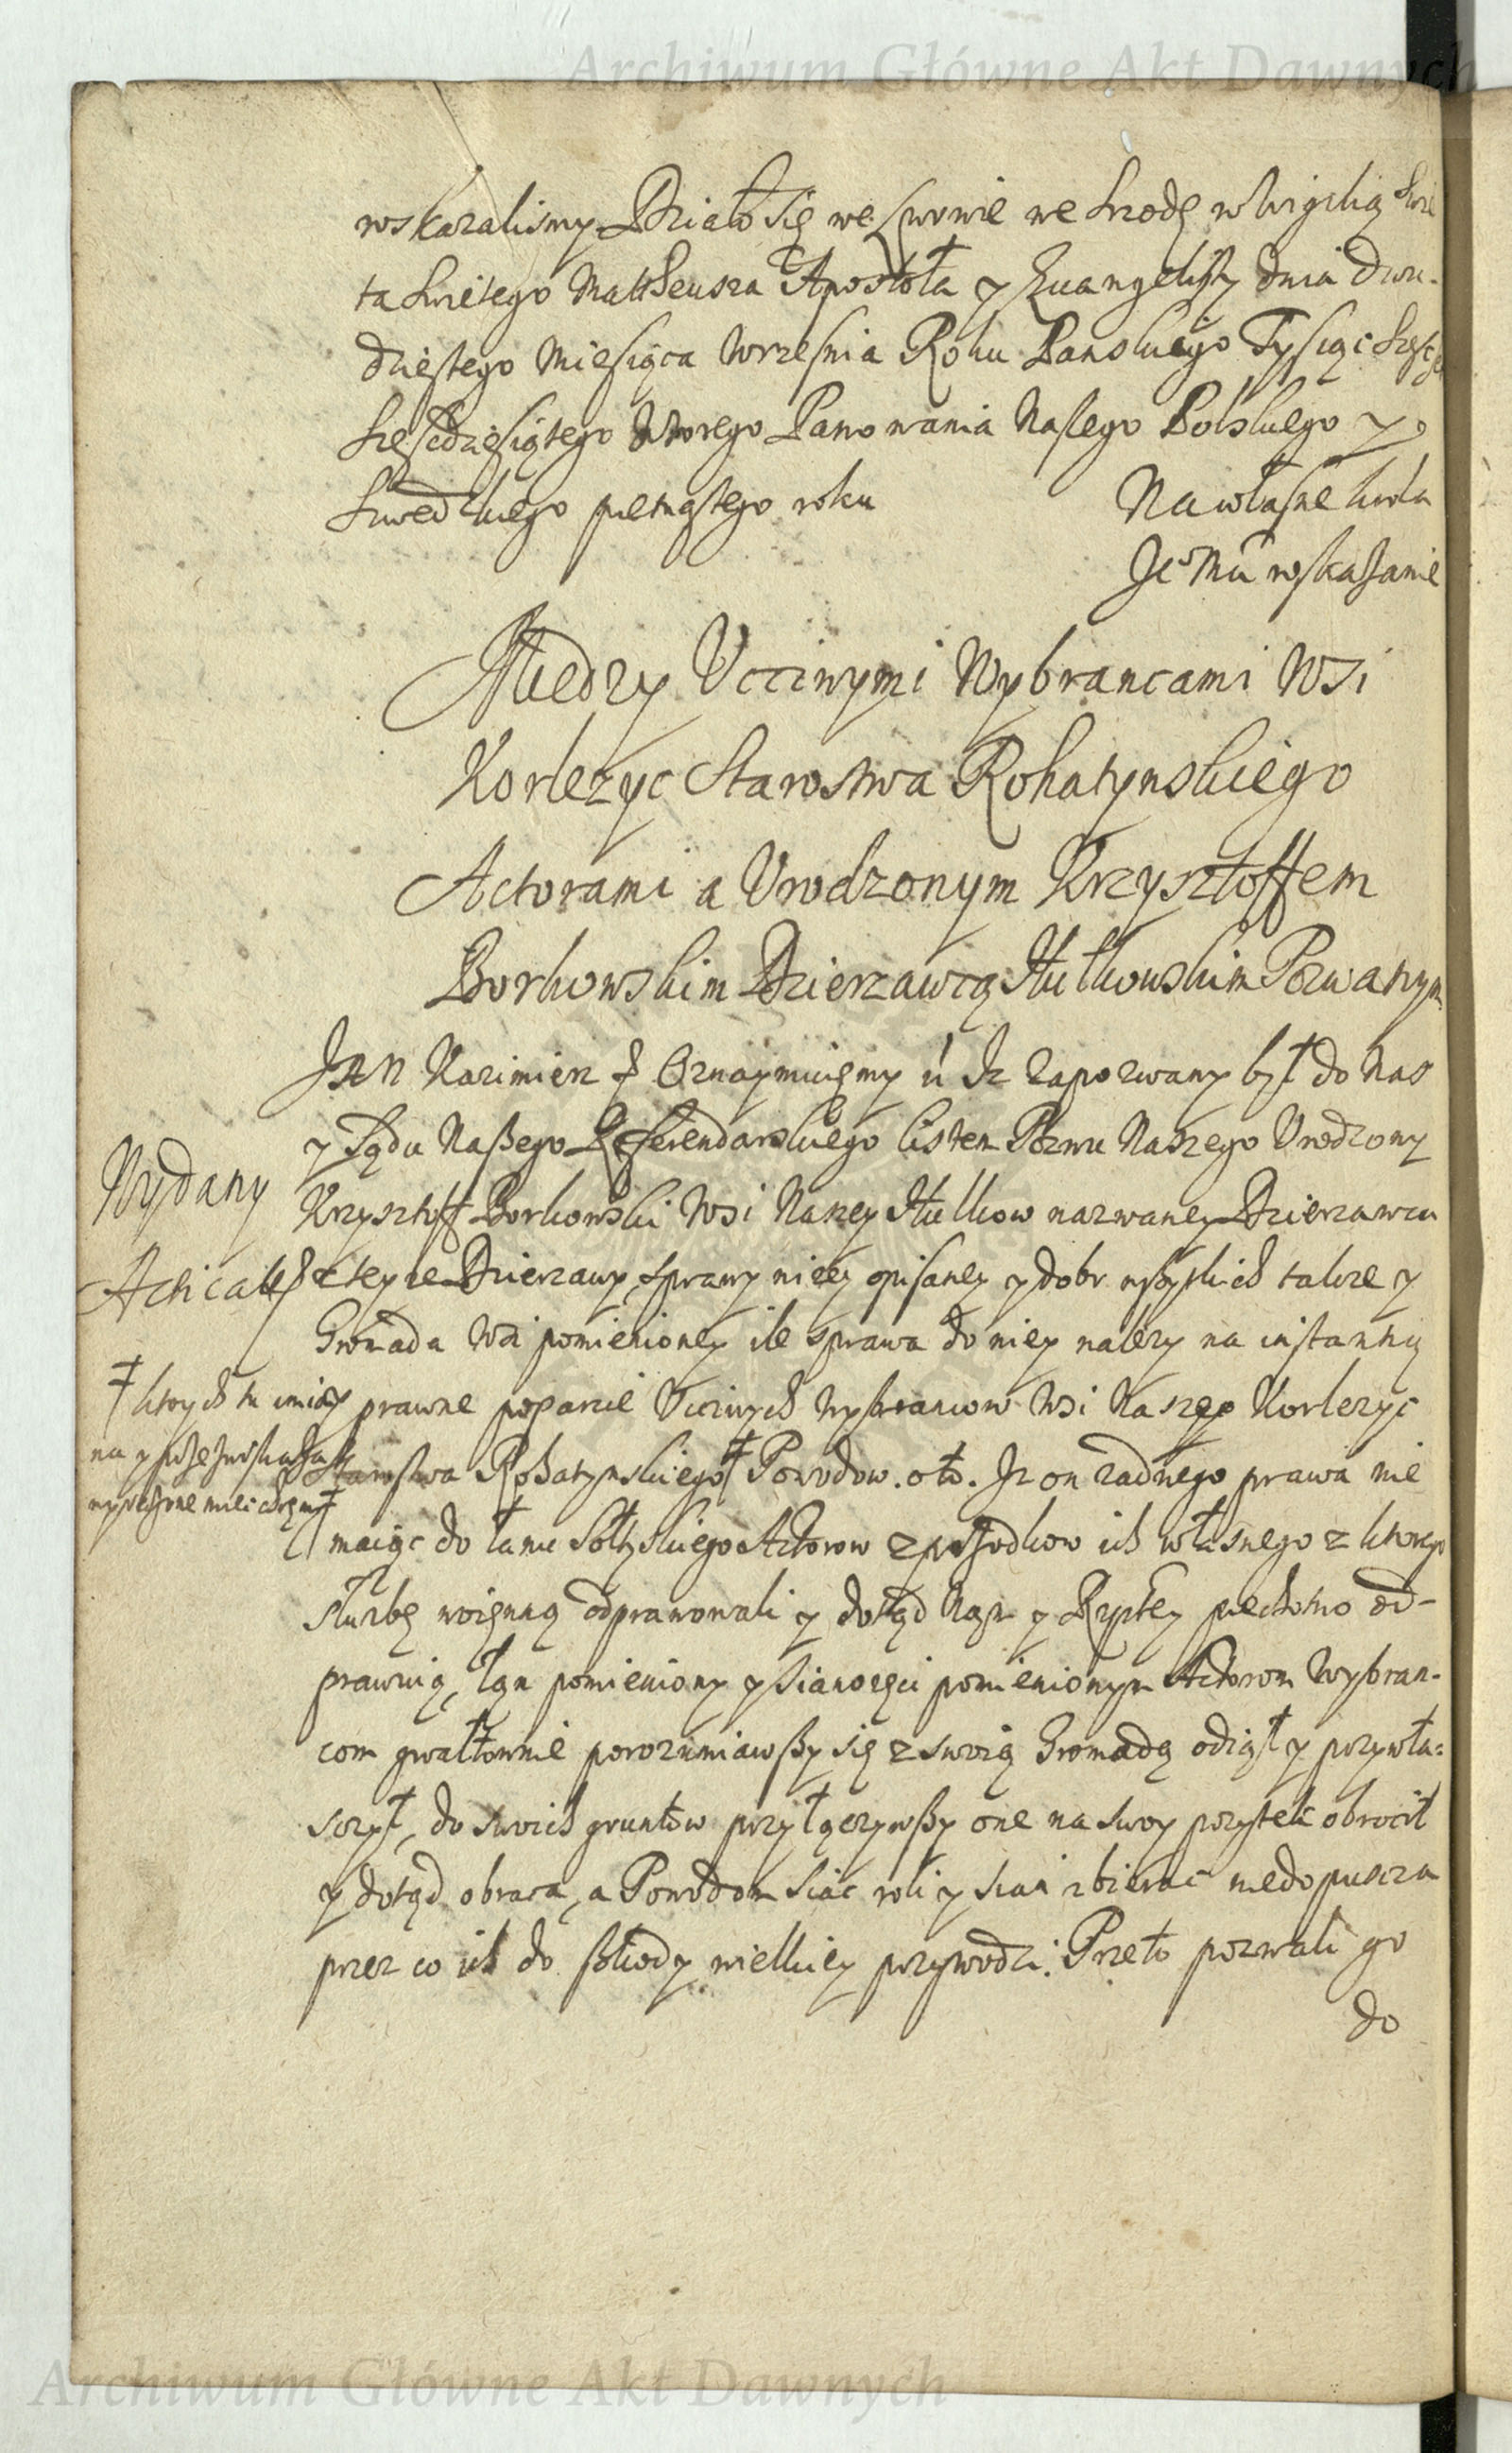 Archiwum Główne Akt Dawnych
wskazalismy Działo się we Lwowie we Srzodę w Wigilią Swię
ta Swiętego Mattheusza Apostoła y Ewangelisty dnia dwu-
dziestego Miesiąca Wrzesnia Roku Panskiego Tysiąc Szesc
Szescdziesiątego Wtorego Panowania Naszego Polskiego y
Swedzkiego piętnastego roku
Na własne
Je Mci wskazanie
Miedzy Uccziwymi Wybrancami Wsi
Korlezyc Starostwa Rohatynskiego
Actorami a Urodzonym Krzysztoffem
Borkowskim Dzierzawcą Hulkowskim Pozwanym
Jan Kazimierz & Oznaymuięmy iż Zapozwany był do Nas
y Sądu Naszego Referendarskiego listem Pozwu Naszego Urodzony
Krzysztoff Borkowski Wsi Naszey Hulkow nazwaney Dzierzawca
z teyze Dzierzawy, sprawy nizey opisaney y dobr wszytkich takze y
Gromada Wsi pomienioney ile sprawa do niey nalezy na instantią
y prawne poparcie Uczciwych Wybrancow Wsi Naszey Korlezyc
Starostwa Rohatynskiego Powodow. oto. Iz on zadnego prawa nie
maiąc do łanu Sołtyskiego Actorow z przodkow ich własnego z ktorego
słuzbę woienną odprawowali y dotąd Nam y Rzptey piechotno od-
prawuią, łan pomieniony y sianozęci pomienionym Actorom Wybran-
com gwałtownie porozumiawszy się z swoią Gromadą odiął y przywła-
sczył, do swoich gruntow przyłączywszy one na swoy pozytek obrocił
y dotąd obraca, a Powodom siac roli y siana zbierac niedopuscza
przez co ich do szkody wielkiey przywodzi. Przeto pozwali go
do
Wydany
Actica
ktorych tu imio
na y przezwiska za
wyrazone miec chcemy
Archiwum Główne Akt Dawnych